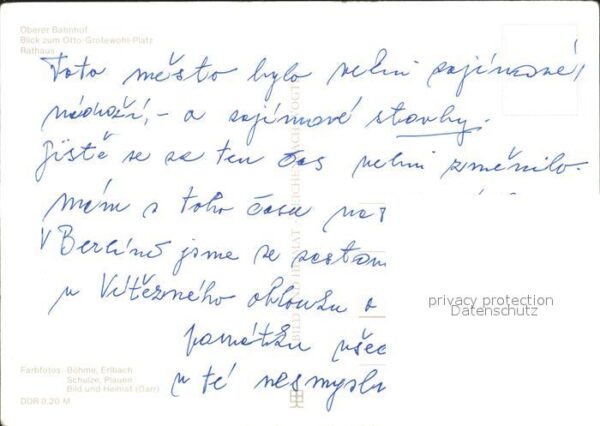 Oberer Bahnhof
Blick zum Otto-Grotewohl-Platz
Rathaus
Toto město bylo velmi zajímavé,
nádraží, - a zajímavé stavby.
Jistě se za ten čas velmi změnilo.
Mám z toho času na
V Berlíně jsme se zastav
u Vítězného oblouku a
privacy protection
Datenschutz
památku všec
u té nesmysln
Farbfotos: Böhme, Erlbach
Schulze, Plauen
Bild und Heimat (Darr)
DDR 0,20 M
BILD UND HEIMAT REICHENBACH (VOGTL)